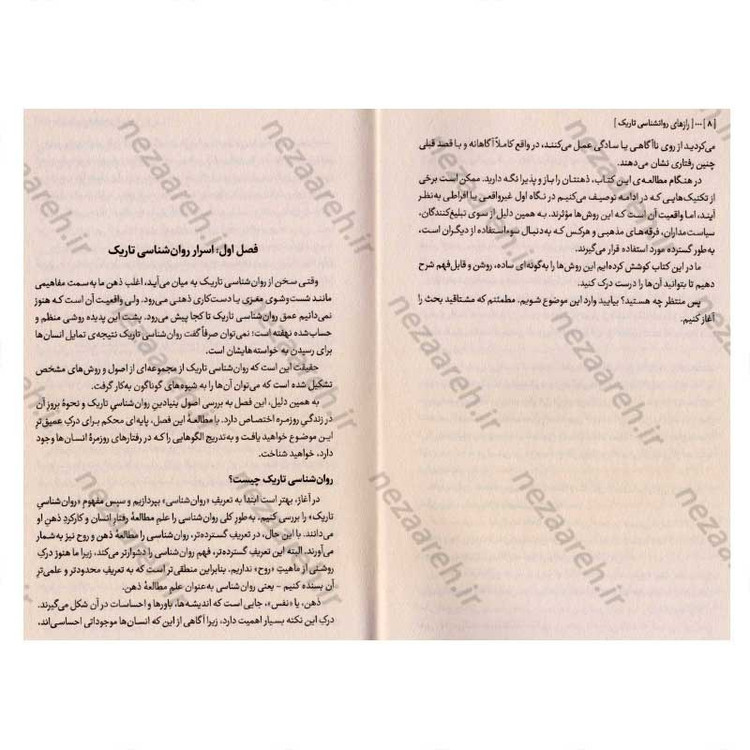 [ ۸ ] ... [ رازهای روانشناسی تاریک ]
می‌کردید از روی ناآگاهی یا سادگی عمل می‌کنند، در واقع کاملاً آگاهانه و با قصد قبلی
چنین رفتاری نشان می‌دهند.
در هنگام مطالعه‌ی این کتاب، ذهنتان را باز و پذیرا نگه دارید. ممکن است برخی
از تکنیک‌هایی که در ادامه توصیف می‌کنیم در نگاه اول غیرواقعی یا افراطی به‌نظر
آیند، اما واقعیت آن است که این روش‌ها مؤثرند. به همین دلیل از سوی تبلیغ‌کنندگان،
سیاست‌مداران، فرقه‌های مذهبی و هرکس که به‌دنبال سوءاستفاده از دیگران است،
به‌طور گسترده مورد استفاده قرار می‌گیرند.
ما در این کتاب کوشش کرده‌ایم این روش‌ها را به‌گونه‌ای ساده، روشن و قابل‌فهم شرح
دهیم تا بتوانید آن‌ها را درست درک کنید.
پس منتظر چه هستید؟ بیایید وارد این موضوع شویم. مطمئنم که مشتاقید بحث را
آغاز کنیم.
فصل اول: اسرار روان‌شناسی تاریک
وقتی سخن از روان‌شناسی تاریک به میان می‌آید، اغلب ذهن ما به‌سمت مفاهیمی
مانند شست‌وشوی مغزی یا دست‌کاری ذهنی می‌رود. ولی واقعیت آن است که هنوز
نمی‌دانیم عمق روان‌شناسی تاریک تا کجا پیش می‌رود. پشت این پدیده روشی منظم و
حساب‌شده نهفته است؛ نمی‌توان صرفاً گفت روان‌شناسی تاریک نتیجه‌ی تمایل انسان‌ها
برای رسیدن به خواسته‌هایشان است.
حقیقت این است که روان‌شناسی تاریک از مجموعه‌ای از اصول و روش‌های مشخص
تشکیل شده است که می‌توان آن‌ها را به شیوه‌های گوناگون به‌کار گرفت.
به همین دلیل، این فصل به بررسی اصول بنیادینِ روان‌شناسیِ تاریک و نحوهٔ بروزِ آن
در زندگیِ روزمره اختصاص دارد. با مطالعهٔ این فصل، پایه‌ای محکم برای درکِ عمیق‌ترِ
این موضوع خواهید یافت و به‌تدریج الگوهایی را که در رفتارهای روزمرهٔ انسان‌ها وجود
دارد، خواهید شناخت.
روان‌شناسی تاریک چیست؟
در آغاز، بهتر است ابتدا به تعریفِ «روان‌شناسی» بپردازیم و سپس مفهوم «روان‌شناسیِ
تاریک» را بررسی کنیم. به‌طورِ کلی روان‌شناسی را علمِ مطالعهٔ رفتارِ انسان و کارکردِ ذهنِ او
می‌دانند. با این حال، در تعریفِ گسترده‌تر، روان‌شناسی را مطالعهٔ ذهن و روح نیز به‌شمار
می‌آورند. البته این تعریفِ گسترده‌تر، فهم روان‌شناسی را دشوارتر می‌کند، زیرا ما هنوز درکِ
روشنی از ماهیتِ «روح» نداریم. بنابراین منطقی‌تر است که به تعریفِ محدودتر و علمی‌ترِ
آن بسنده کنیم - یعنی روان‌شناسی به‌عنوان علمِ مطالعهٔ ذهن.
ذهن، یا «نفس»، جایی است که اندیشه‌ها، باورها و احساسات در آن شکل می‌گیرند.
درکِ این نکته بسیار اهمیت دارد، زیرا آگاهی از این که انسان‌ها موجوداتی احساسی‌اند،
nezaareh.ir